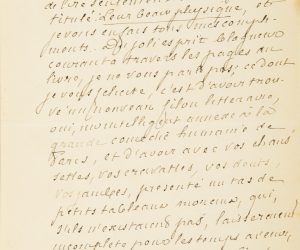 titulé Leur beau physique, et
je vous en fais tous mes compli-
ments. Du joli esprit
courant à travers les pages du
livre, je ne vous parle pas; ce dont
je vous félicite, c'est d'avoir trou-
vé un nouveau filon littéraire,
annexé à la
grande comédie humaine de
Paris, et d'avoir avec vos chaus-
settes, vos cravattes, vos dents,
vos jambes, présenté un tas de
petits tableaux qui,
s'ils n'existaient pas, laisseraient
incomplète pour les temps à venir,